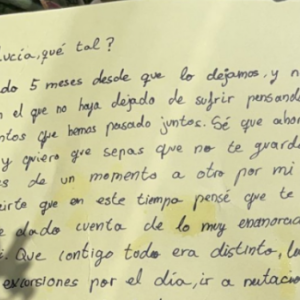 ucía, qué tal?
do 5 meses desde que lo dejamos, y n
n el que no haya dejado de sufrir pensand
ntos que hemos pasado juntos. Sé que ahor
y quiero que sepas que no te guard
s de un momento a otro por mi
irte que en este tiempo pensé que te
e dado cuenta de lo muy enamora
. Que contigo todo era distinto, lu
excursiones por el día, ir a natació